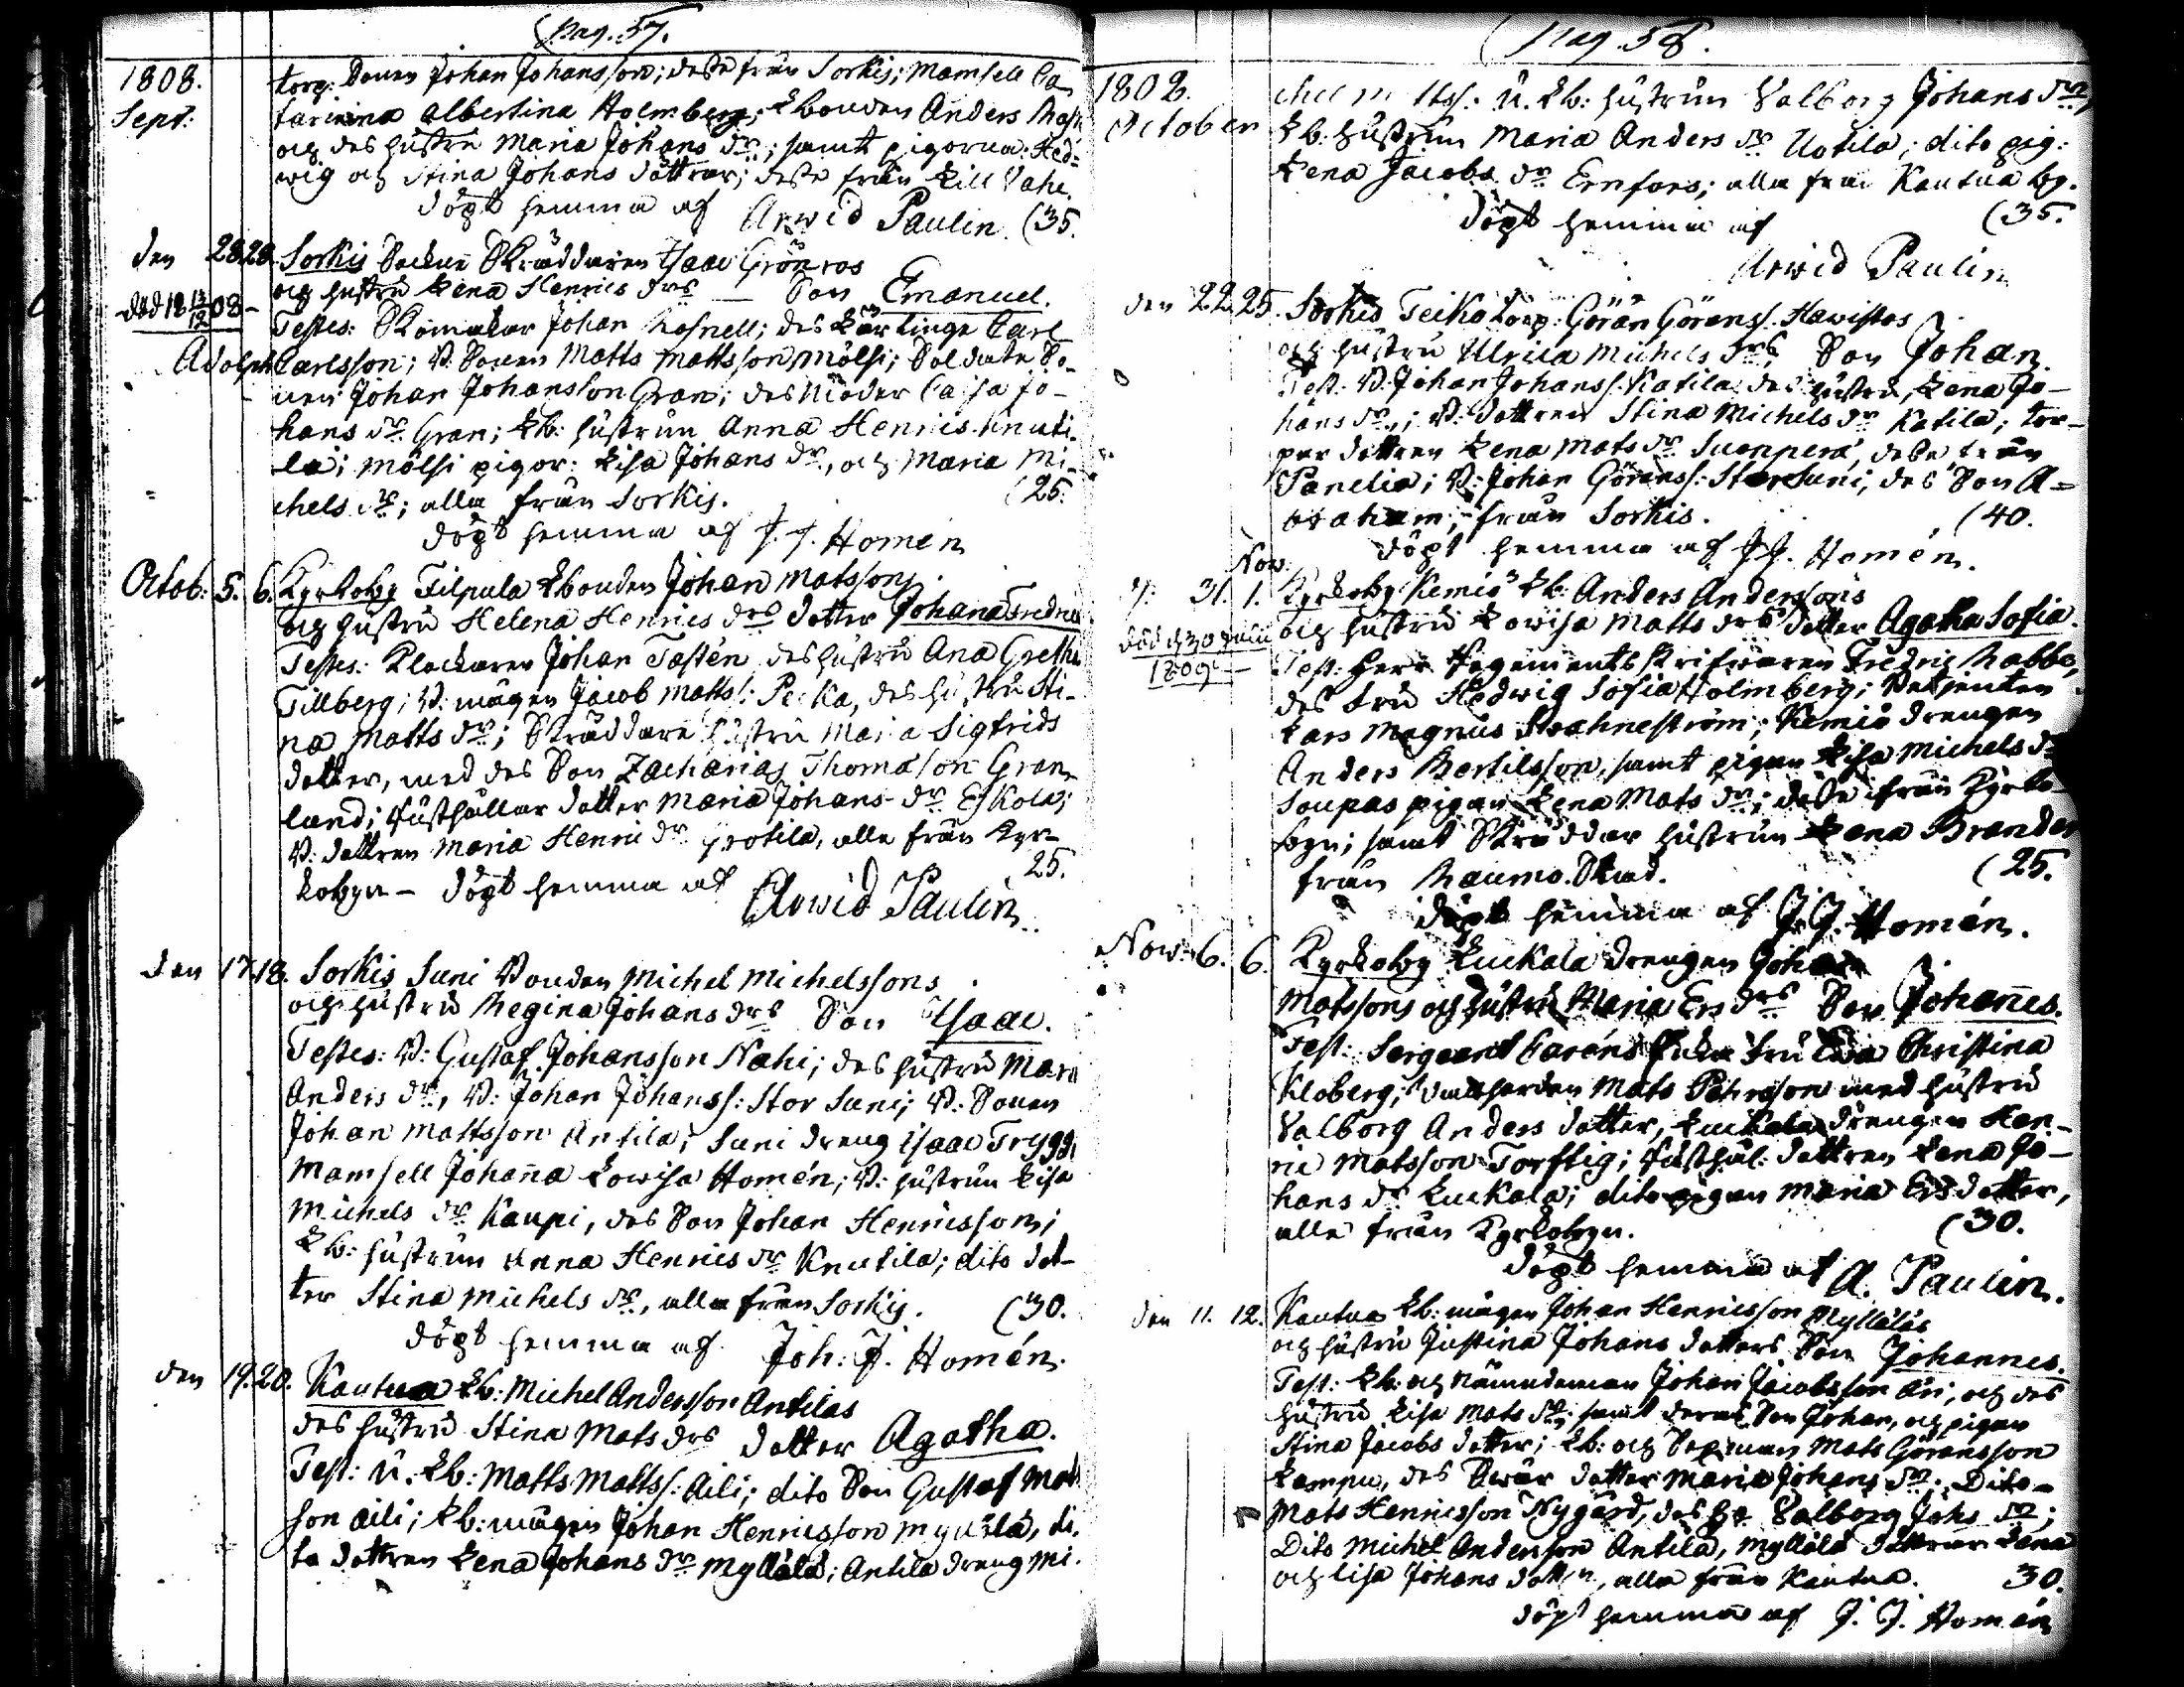 pag. 57.
1808.
Sept:
torp: Sonen Johan Johansson; desse från Sorkis; Mamsell Ca-
tarina Albertina Holmberg; Lbonden Anders
och des hustru Maria Johans dr; samt pigorna: Hed=
wig och Stina Johans döttrar; desse från Lill Vahe.
döpt hemma af Arwid Paulin. (35.
den 28. 29. Sorkis Sockne Skräddaren Isaac Grönroos
och hustru Lena Henrics drs — Son Emanuel.
död 18 13/12 08 –
Testes: Skomakar Johan; des Lärlinge Carl
Adolph Carlsson; B. Sonen Matts Mattsson Mölsi; Soldate So-
nen Johan Johansson Gran; des Moder Caisa Jo-
hans dr Gran; Lb: hustrun Anna Henrics Knuti-
la; Mölsi pigor: Lisa Johans dr, och Maria Mi-
chels dr; alla från Sorkis. (25.
döpt hemma af J. J. Homén
Octob: 5. 6. Kyrkoby Filpula Lbonden Johan Matssons
och hustru Helena Henrics drs dotter Johana Fredrica
Testes: Klockaren Johan Tasten des hustru Ana Gretha
Tillberg; B: mågen Jacob Matts: Pecka, des hustru Sti-
na Matts dr; Skräddare hustru Maria Sigfrids
dotter, med des Son Zacharias Thomason Gran-
lund; Rusthållar dotter Maria Johans dr Eskola;
B: dottren Maria Henric dr Yrotila, alla från Kyr-
kobyn – döpt hemma af 25.
Arwid Paulin
den 17. 18. Sorkis Suni Bonden Michel Michelssons
och hustru Regina Johans drs Son Isaac.
Testes: B: Gustaf Johansson Nahi; des hustru Maria
Anders dr, B: Johan Johanss: Stor Suni; B: Sonen
Johan Mattsson Antila; Suni dreng Isaac Trygg;
Mamsell Johana Lowisa Homén; B: hustrun Lisa
Michels dr Kaupi, des Son Johan Henricsson;
Lb: hustrun Anna Henrics dr Knutila; dito dot-
ter Stina Michels dr, alla från Sorkis. (30.
döpt hemma af Joh: J. Homén.
den 19. 20. Kautua Lb: Michel Andersson Antilas
des hustru Stina Mats drs dotter Agatha.
Test: U. Lb: Matts Matts: Äili; dito Son Gustaf Mats
son Äili; Lb: mågen Johan Henricsson Myllälä, di-
to dottren Lena Johans dr Myllälä; Antila dreng Mi-
pag. 58.
1808.
October
chel Matss: U. Lb: hustrun Valborg Johans dr,
Lb: hustrun Maria Anders dr Uotila; dito pig:
Lena Jacobs dr Ernfors; alla från Kautua by.
döpt hemma af (35.
Arwid Paulin
den 22. 25. Sorkis Teiko torp: Göran Görans: Hawistos
och hustru Ulrica Michels drs Son Johan.
Test: B: Johan Johanss: Katila des hustru, Lena Jo-
hans dr; B: dottren Stina Michels dr Katila; tor-
par dottren Lena Mats dr Suonperä, desse från
Panelia; B: Johan Görans: Stor Suni, des Son A=
braham; från Sorkis. (40.
döpt hemma af J. J. Homén.
Nov:
d: 31. 1. Kyrkoby Kemis Lb: Anders Anderssons
och hustru Lowisa Matts drs dotter Agatha Sofia.
död d. 30 Julii
1809 —
Test: Herr Regements Skrifwaren Fredric Nabbe,
des Fru Hedwig Sofia Holmberg; Betjenten
Lars Magnus Strahneström; Kemis drengen
Anders Bertilsson, samt pigan Lisa Michels dr
Soupas pigan Lena Mats dr; desse från Kyrko-
byn; samt Skräddar hustrun Lena Brander
från Raumo Stad. (25.
döpt hemma af J. J. Homén.
Now: 6. 6. Kyrkoby Luckala drengen Johan
Matssons och hustru Maria Ers drs Son Johanes.
Test: Sergeant Caréns Enka Fru Christina
Kloberg; Mats Petersson med hustru
Valborg Anders dotter, Luckala drengen Hen-
ric Matsson Torftig; Rusthål: dottren Lena Jo-
hans dr Luckala; dito pigan Maria Ersdotter,
alla från Kyrkobyn. (30.
döpt hemma af A. Paulin.
den 11. 12. Kautua Lb: mågen Johan Henricsson Mylläläs
och hustru Justina Johans dotters Son Johannes.
Test: Lb: och Nämndeman Johan Jacobsson Äri, och des
hustru Lisa Mats dr, samt deras Son Johan, och pigan
Stina Jacobs dotter; Lb: och Sexman Mats Göransson
Lampu, des Swär dotter Maria Johans dr; Dito –
Mats Henricsson Nygård, des hr Valborg Johs dr;
Dito Michel Andersson Antila, Myllälä döttrar Lena
och Lisa Johans dotter, alla från Kautua. 30.
döpt hemma af J. J. Homén